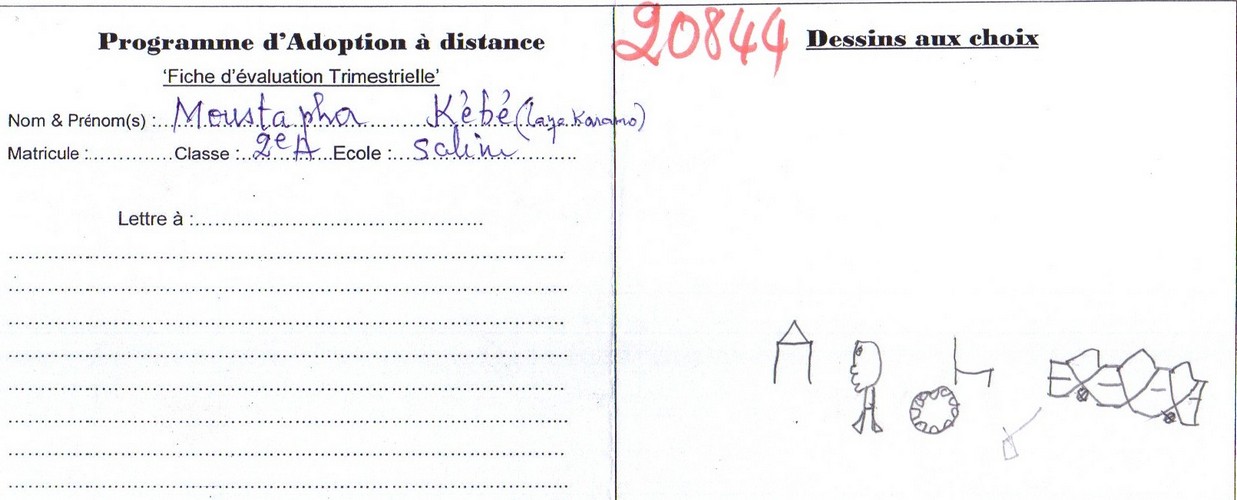 Programme d'Adoption à distance
'Fiche d'évaluation Trimestrielle'
Nom & Prénom(s) :..Moustapha Kèbé (Laya Karamo)
Matricule :............Classe :..2eA....Ecole :...Salim...........
Lettre à :......................................................
20844
Dessins aux choix